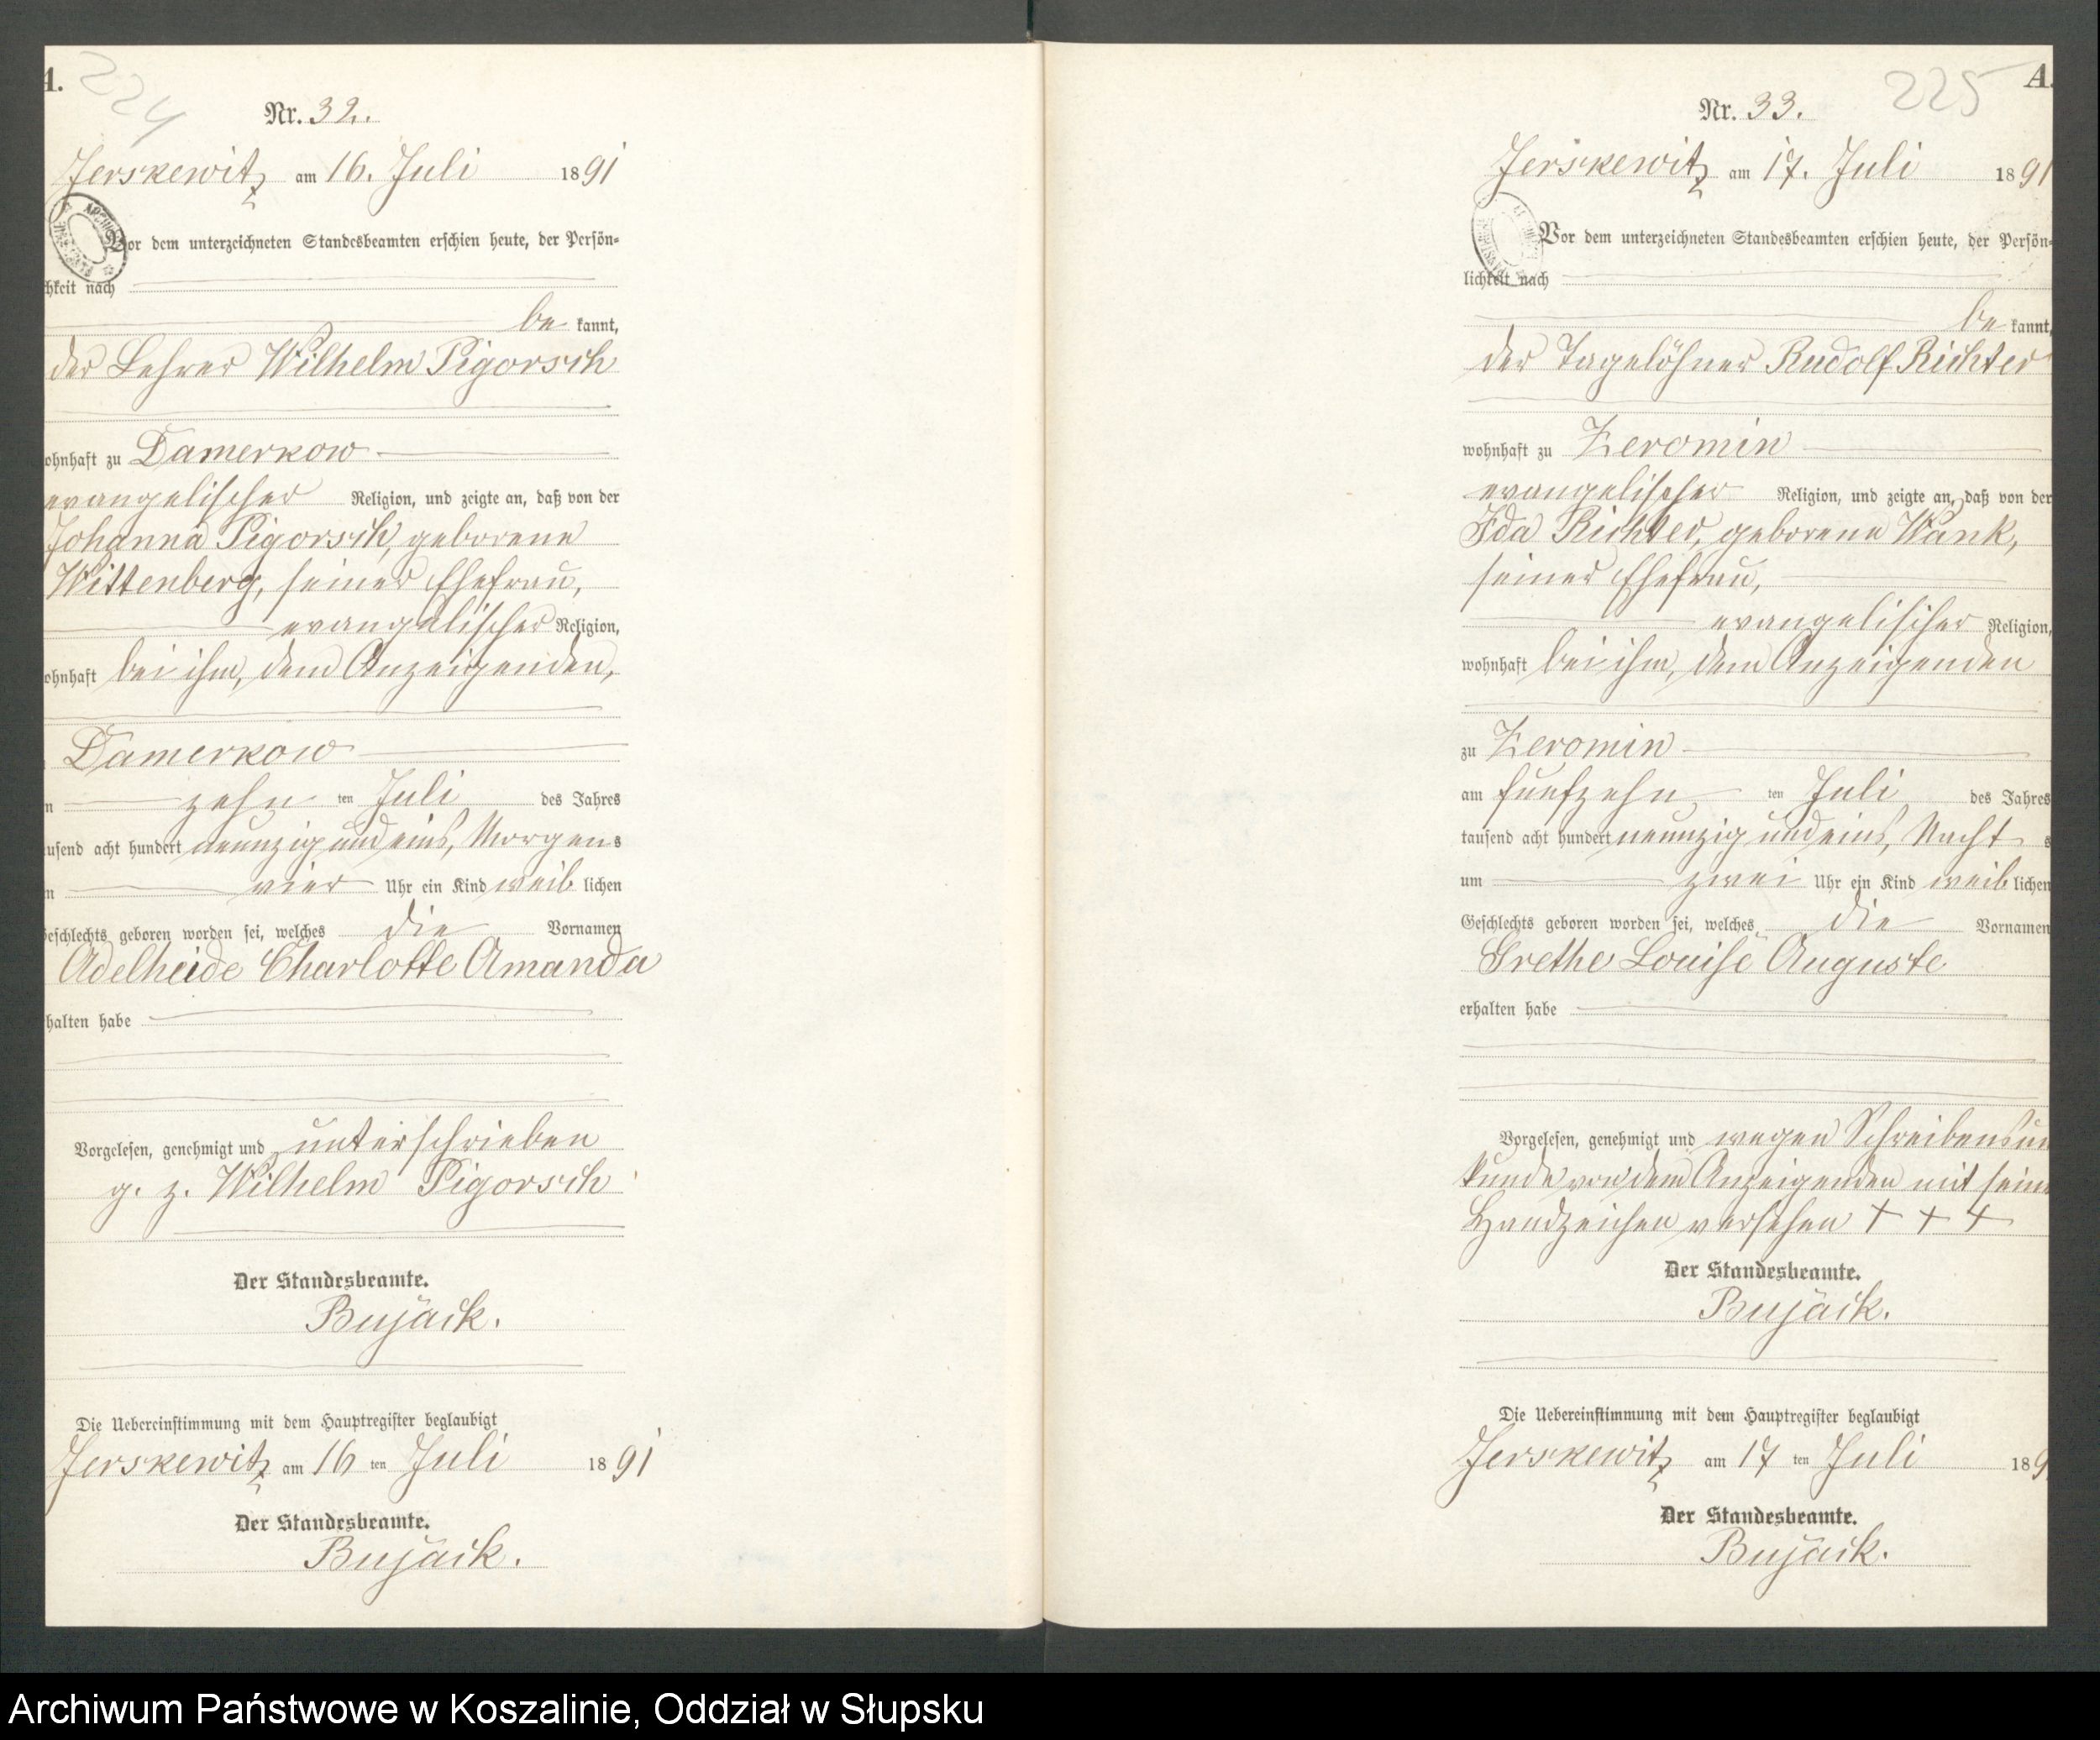 A.
224
Nr. 32.
Jerskewitz am 16. Juli 1891
Vor dem unterzeichneten Standesbeamten erschien heute, der Persön-
hkeit nach
be kannt,
der Lehrer Wilhelm Pigorsch
ohnhaft zu Damerkow
evangelischer Religion, und zeigte an, daß von der
Johanna Pigorsch, geborene
Wittenberg, seiner Ehefrau,
evangelischer Religion,
ohnhaft bei ihm, dem Anzeigenden,
Damerkow
n zehn ten Juli des Jahres
usend acht hundert neunzig und eins, Morgens
n vier Uhr ein Kind weiblichen
eschlechts geboren worden sei, welches die Vornamen
Adelheide Charlotte Amanda
halten habe
Vorgelesen, genehmigt und unterschrieben
g. z. Wilhelm Pigorsch
Der Standesbeamte.
Bujack.
Die Uebereinstimmung mit dem Hauptregister beglaubigt
Jerskewitz am 16 ten Juli 1891
Der Standesbeamte.
Bujack.
225
A.
Nr. 33.
Jerskewitz am 17. Juli 1891
Vor dem unterzeichneten Standesbeamten erschien heute, der Persön-
lichkeit nach
be kannt,
der Tagelöhner Rudolf Richter
wohnhaft zu Zeromin
evangelischer Religion, und zeigte an, daß von der
Ida Richter, geborene Wank,
seiner Ehefrau,
evangelischer Religion,
wohnhaft bei ihm, dem Anzeigenden
zu Zeromin
am fünfzehn ten Juli des Jahres
tausend acht hundert neunzig und eins, Nacht s
um zwei Uhr ein Kind weiblichen
Geschlechts geboren worden sei, welches die Vornamen
Grethe Louise Auguste
erhalten habe
Vorgelesen, genehmigt und wegen Schreibensun
kunde von dem Anzeigenden mit seine
Handzeichen versehen + + +
Der Standesbeamte.
Bujack.
Die Uebereinstimmung mit dem Hauptregister beglaubigt
Jerskewitz am 17 ten Juli 189
Der Standesbeamte.
Bujack.
Archiwum Państwowe w Koszalinie, Oddział w Słupsku